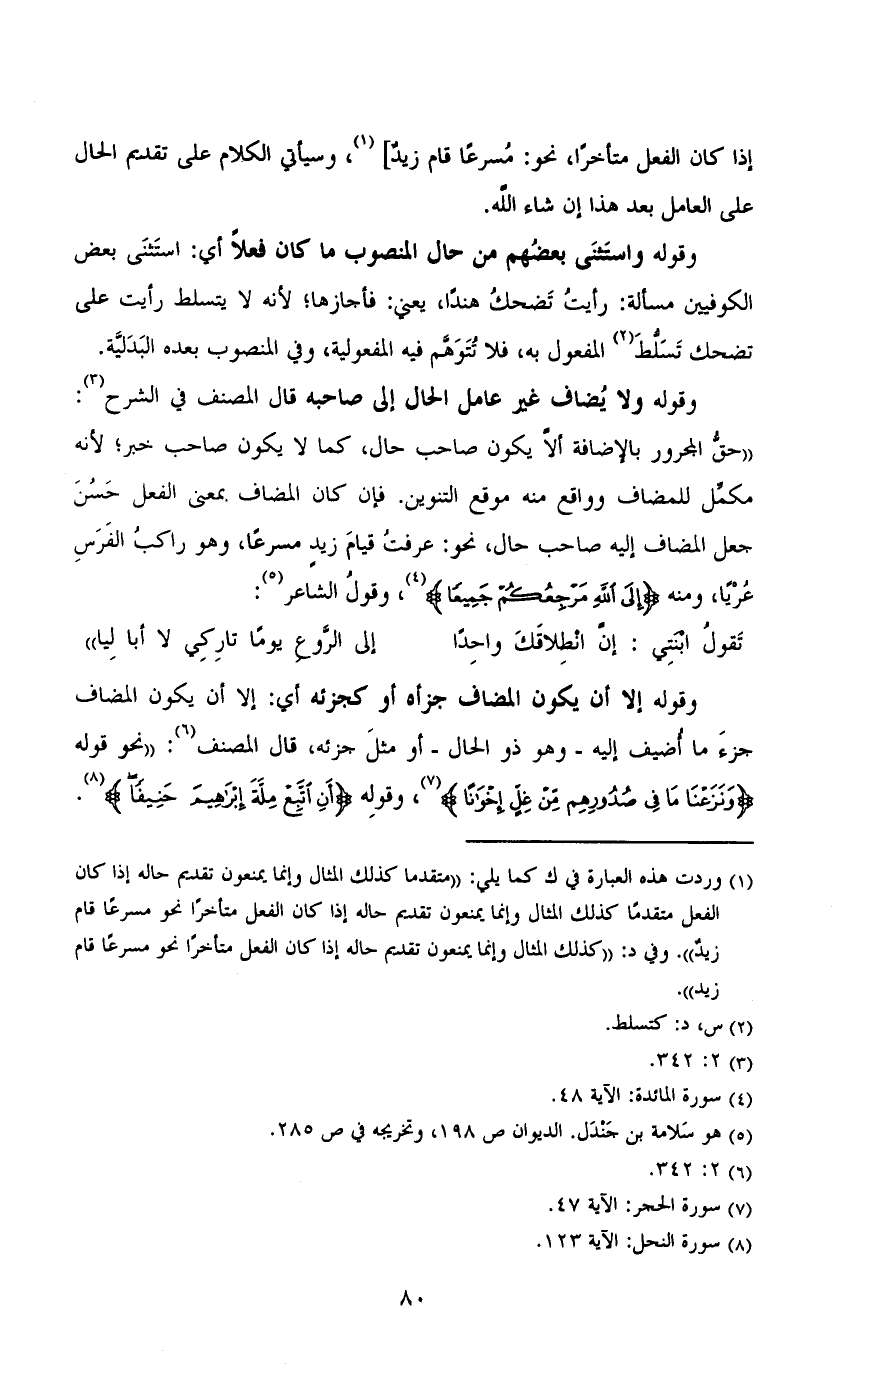 إذا كان الفعل متأخرًا، نحو: مُسرعًا قام زيدٌ] (١)، وسيأتي الكلام على تقديم الحال
على العامل بعد هذا إن شاء اللَّه.
وقوله واستَثنَى بعضُهم من حال المنصوب ما كان فعلاً أي: استَثنَى بعض
الكوفيين مسألة: رأيتُ تَضحكُ هندًا، يعني: فأجازها؛ لأنه لا يتسلط رأيت على
تضحك تَسَلُّطَ(٢) المفعول به، فلا تُتَوَهَّم فيه المفعولية، وفي المنصوب بعده البَدَليَّة.
وقوله ولا يُضاف غير عامل الحال إلى صاحبه قال المصنف في الشرح(٣):
((حقُّ المجرور بالإضافة ألاَّ يكون صاحب حال، كما لا يكون صاحب خبر؛ لأنه
مكمِّل للمضاف وواقع منه موقع التنوين. فإن كان المضاف بمعنى الفعل حَسُنَ
جعل المضاف إليه صاحب حال، نحو: عرفتُ قيامَ زيدٍ مسرعًا، وهو راكبُ الفَرَسِ
عُرْيًا، ومنه ﴿إِلَى ٱللَّهِ مَرْجِعُكُمْ جَمِيعًا﴾(٤)، وقولُ الشاعر(٥):
تَقولُ ابْنَتِي : إنَّ انْطِلاقَكَ واحِدًا إلى الرَّوعِ يومًا تارِكِي لا أبا لِيا))
وقوله إلا أن يكون المضاف جزأه أو كجزئه أي: إلا أن يكون المضاف
جزءَ ما أُضيف إليه - وهو ذو الحال - أو مثلَ جزئه، قال المصنف(٦): ((نحو قوله
﴿وَنَزَعْنَا مَا فِى صُدُورِهِم مِّنْ غِلٍّ إِخْوَٰنًا﴾(٧)، وقوله ﴿أَنِ ٱتَّبِعْ مِلَّةَ إِبْرَٰهِيمَ حَنِيفًا﴾(٨).
(١) وردت هذه العبارة في ك كما يلي: ((متقدما كذلك المثال وإنما يمنعون تقديم حاله إذا كان
الفعل متقدمًا كذلك المثال وإنما يمنعون تقديم حاله إذا كان الفعل متأخرًا نحو مسرعًا قام
زيدٌ)). وفي د: ((كذلك المثال وإنما يمنعون تقديم حاله إذا كان الفعل متأخرًا نحو مسرعًا قام
زيد)).
(٢) س، د: كتسلط.
(٣) ٢: ٣٤٢.
(٤) سورة المائدة: الآية ٤٨.
(٥) هو سَلامة بن جَنْدَل. الديوان ص ١٩٨، وتخريجه في ص ٢٨٥.
(٦) ٢: ٣٤٢.
(٧) سورة الحجر: الآية ٤٧.
(٨) سورة النحل: الآية ١٢٣.
٨٠